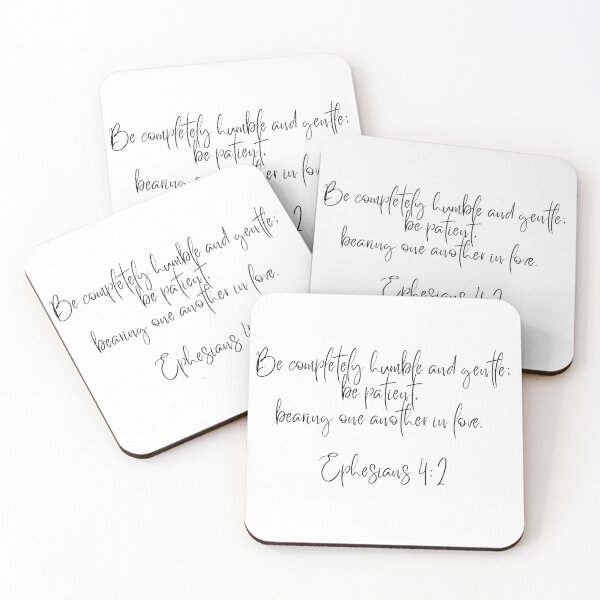 Be completely humble and gentle;
be patient,
bearing in love
2
Be completely humble and gentle;
be patient,
bearing one another in love.
Ephesians 4:2
Be completely humble and gentle;
be patient,
bearing one another in love.
Ephesians 4
Be completely humble and gentle;
be patient,
bearing one another in love.
Ephesians 4:2